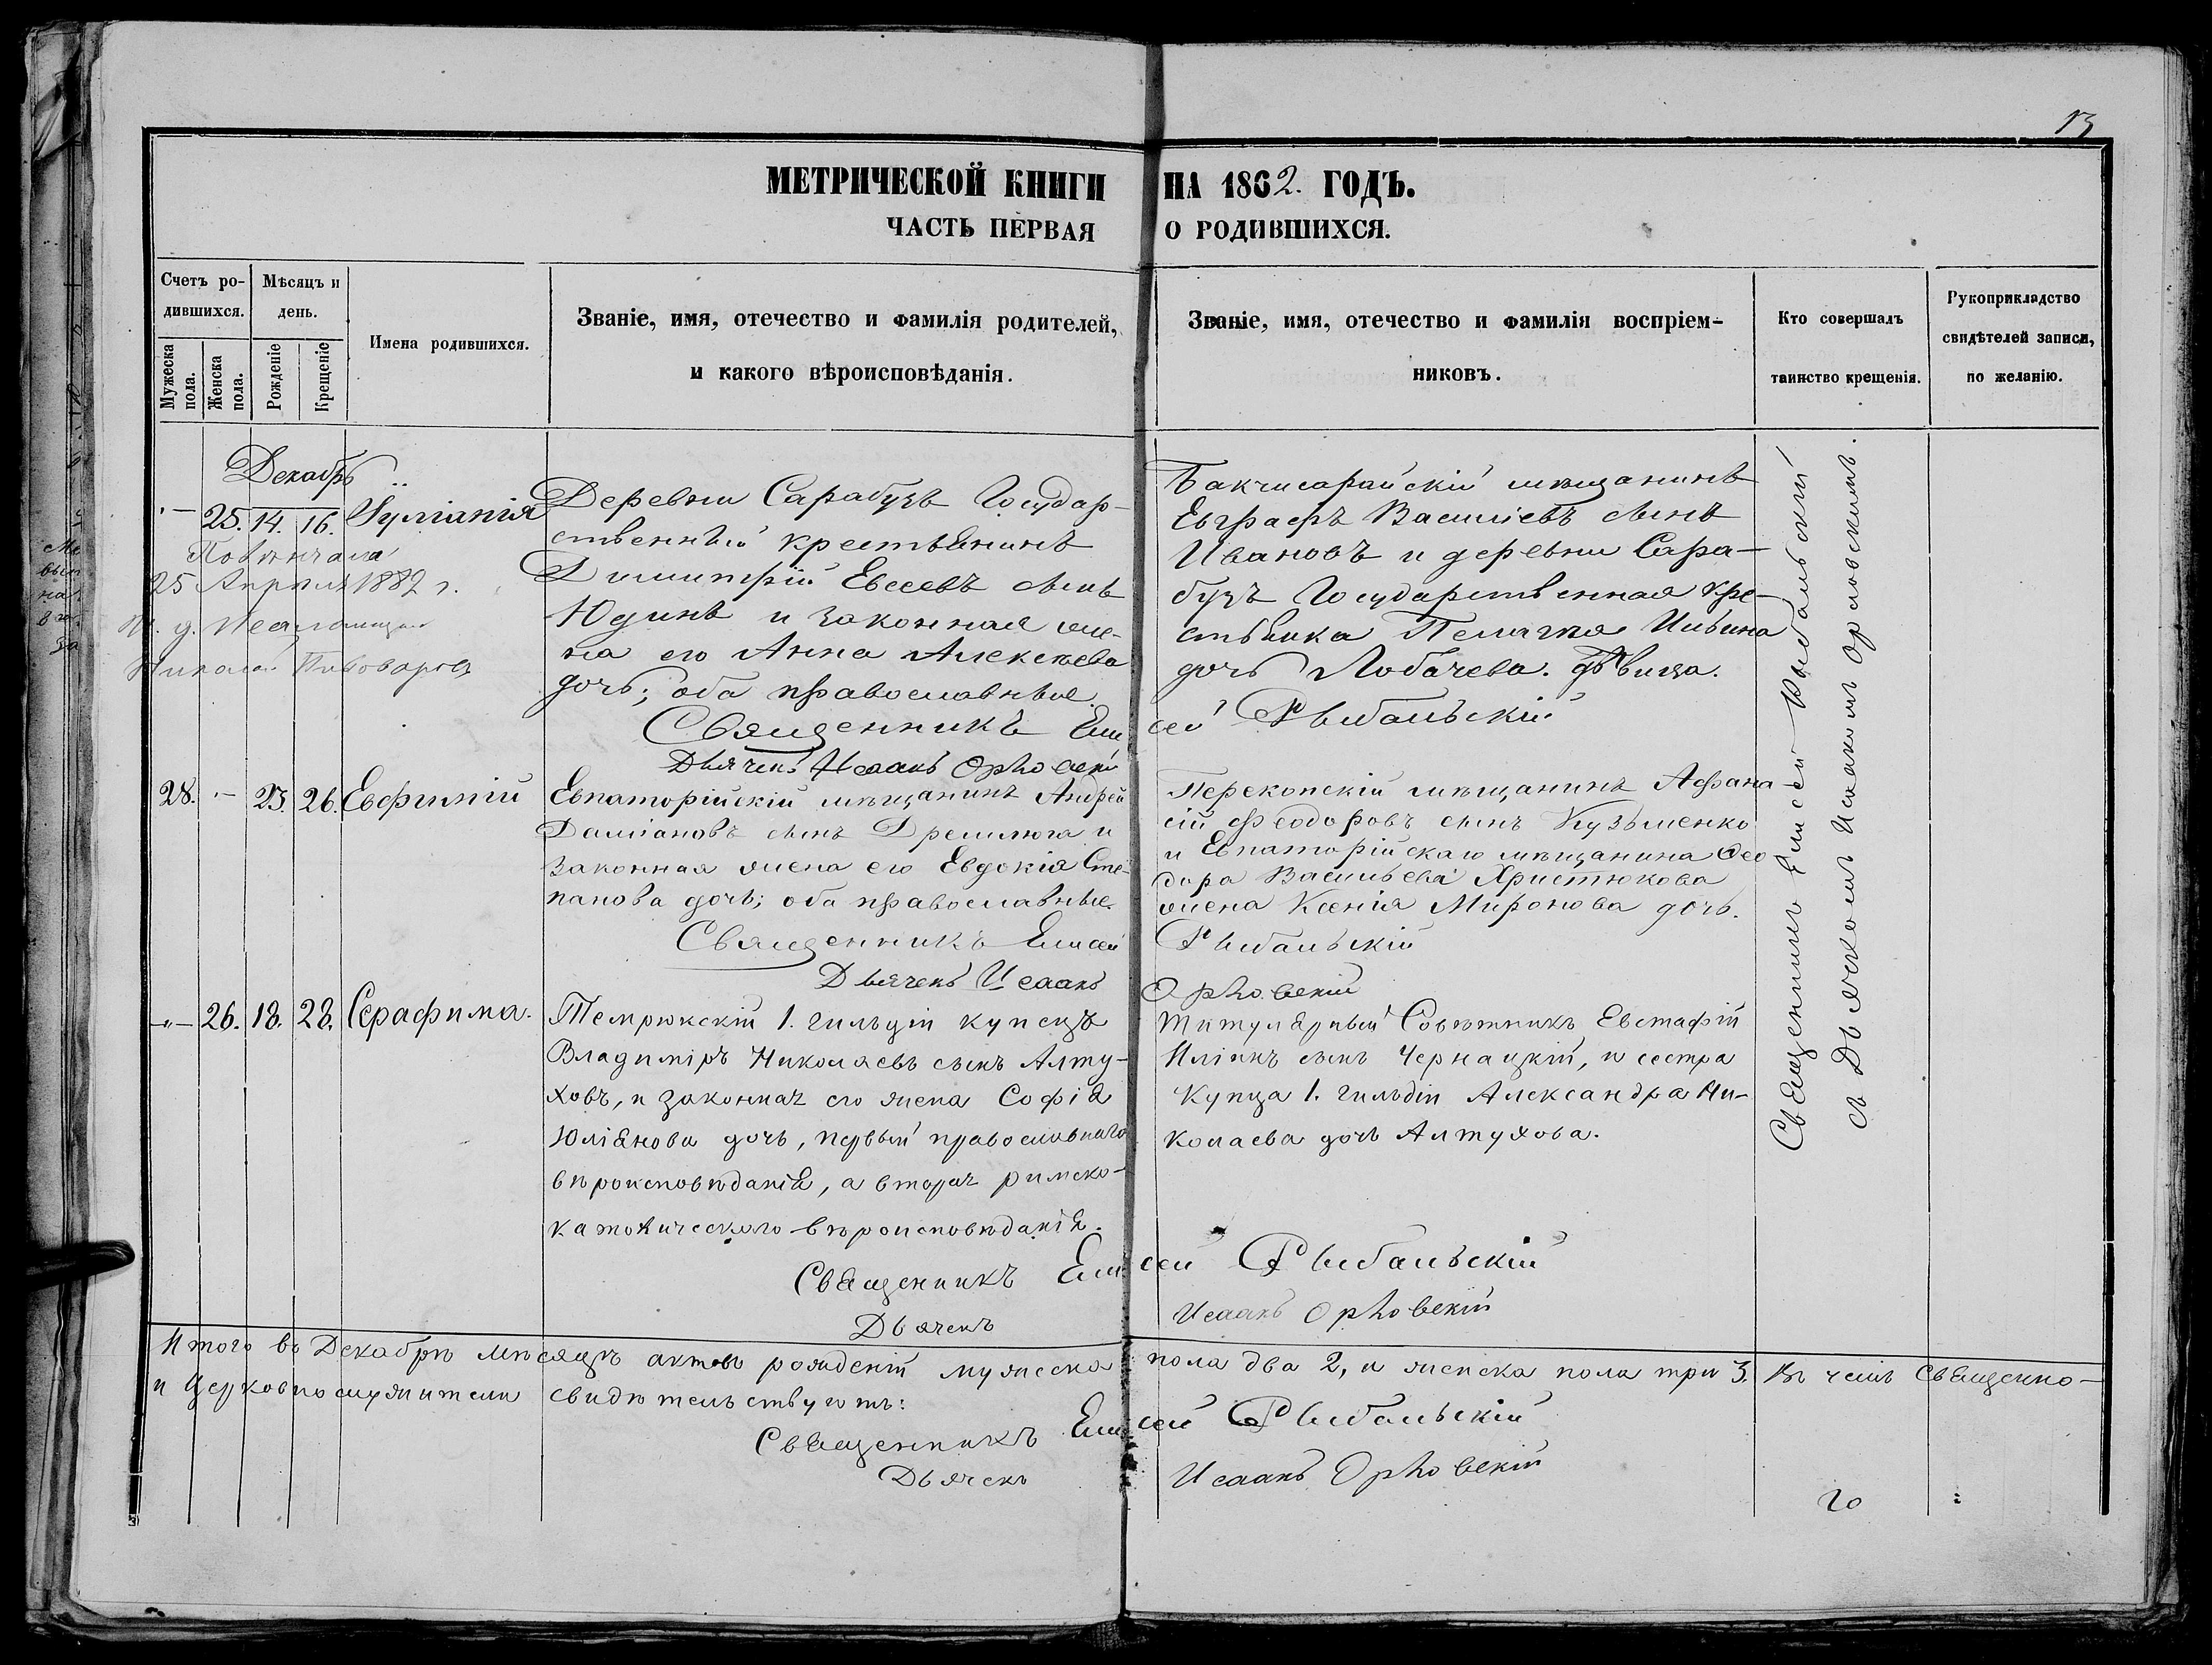 13
МЕТРИЧЕСКОЙ КНИГИ НА 1862. ГОДЪ.
ЧАСТЬ ПЕРВАЯ О РОДИВШИХСЯ.
Счетъ ро-
дившихся.
Мужеска пола.
Женска пола.
Мѣсяцъ и
день.
Рожденіе
Крещеніе
Имена родившихся.
Званіе, имя, отечество и фамилія родителей,
и какого вѣроисповѣданія.
Званіе, имя, отечество и фамилія воспріем-
никовъ.
Кто совершалъ
таинство крещенія.
Рукоприкладство
свидѣтелей записи,
по желанію.
Декабрь
25. 14. 16. Іуліанія
Повѣнчана
25 Апрѣля 1882 г.
Николай Пивоваровъ
Деревни Сарабузъ Государ-
ственный крестьянинъ
Димитрій Евсеевъ сынъ
Юдинъ и законная же-
на его Анна Алексѣева
дочь; оба православные.
Бакчисарайскій мѣщанинъ
Евграфъ Василіевъ сынъ
Ивановъ и деревни Сара-
бузъ Государственная кре-
стьянка Пелагія Ильина
дочь Лобачева. дѣвица.
Священникъ Елисей Рыбальскій
Дьячекъ Исаакъ Орловскій
28. - 23. 26. Евфимій
Евпаторійскій мѣщанинъ Андрей
Даміановъ сынъ Дремлюга и
законная жена его Евдокія Сте-
панова дочь; оба православные.
Перекопскій мѣщанинъ Афана
сій Феодоровъ сынъ Кузьменко
и Евпаторійскаго мѣщанина Фео
дора Васильева Христюкова
жена Ксенія Миронова дочь.
Священникъ Елисей Рыбальскій
Дьячекъ Исаакъ Орловскій
-"- 26. 18. 28. Серафима.
Темрюкскій 1. гильдіи купецъ
Владиміръ Николаевъ сынъ Алту-
ховъ, и законная его жена Софія
Юліянова дочь, первый православнаго
вѣроисповѣданія, а вторая римско-
католическаго вѣроисповѣданія.
Титулярный Совѣтникъ Евстафій
Иліинъ сынъ Чернацкій, и сестра
Купца 1. гильдіи Александра Ни-
колаева дочь Алтухова.
Священникъ Елисей Рыбальскій
Дьячекъ Исаакъ Орловскій
Священникъ Елисей Рыбальскій
съ Дьячкомъ Исаакомъ Орловскимъ.
Итого въ Декабрѣ мѣсяцѣ актовъ рожденій мужеска пола два 2, и женска пола три 3. Въ чемъ Священно-
и Церковнослужители свидѣтельствуютъ:
Священникъ Елисей Рыбальскій
Дьячекъ Исаакъ Орловскій
го